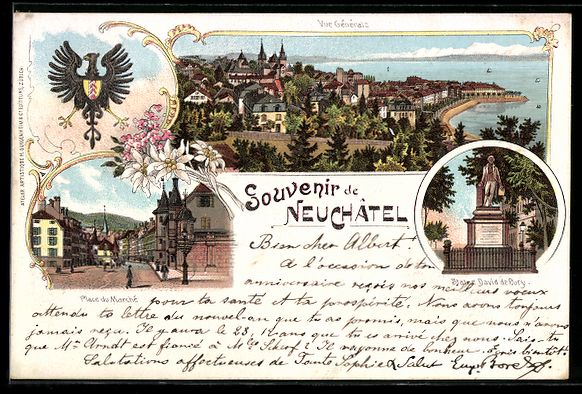 Vue Générale
ATELIER ARTISTIQUE H. GUGGENHEIM & Cº EDITEURS, ZÜRICH
Souvenir de
NEUCHÂTEL
Place David de Pury.
Place du Marché
Bien cher Albert!
A l'occasion de ton
anniversaire reçois nos meilleurs voeux
pour ta santé & ta prospérité. Nous avons toujours
attendu ta lettre du nouvel an que tu as promis, mais que nous n'avons
jamais reçu. Il y aura le 23, ans que tu es arrivé chez nous. Sais-tu
que Mr. Arndt est fiancé à Mlle ? Il rayonne de bonheur. Ecris bientôt!
Salutations affectueuses de Tante Sophie & Salut Eug. Borel